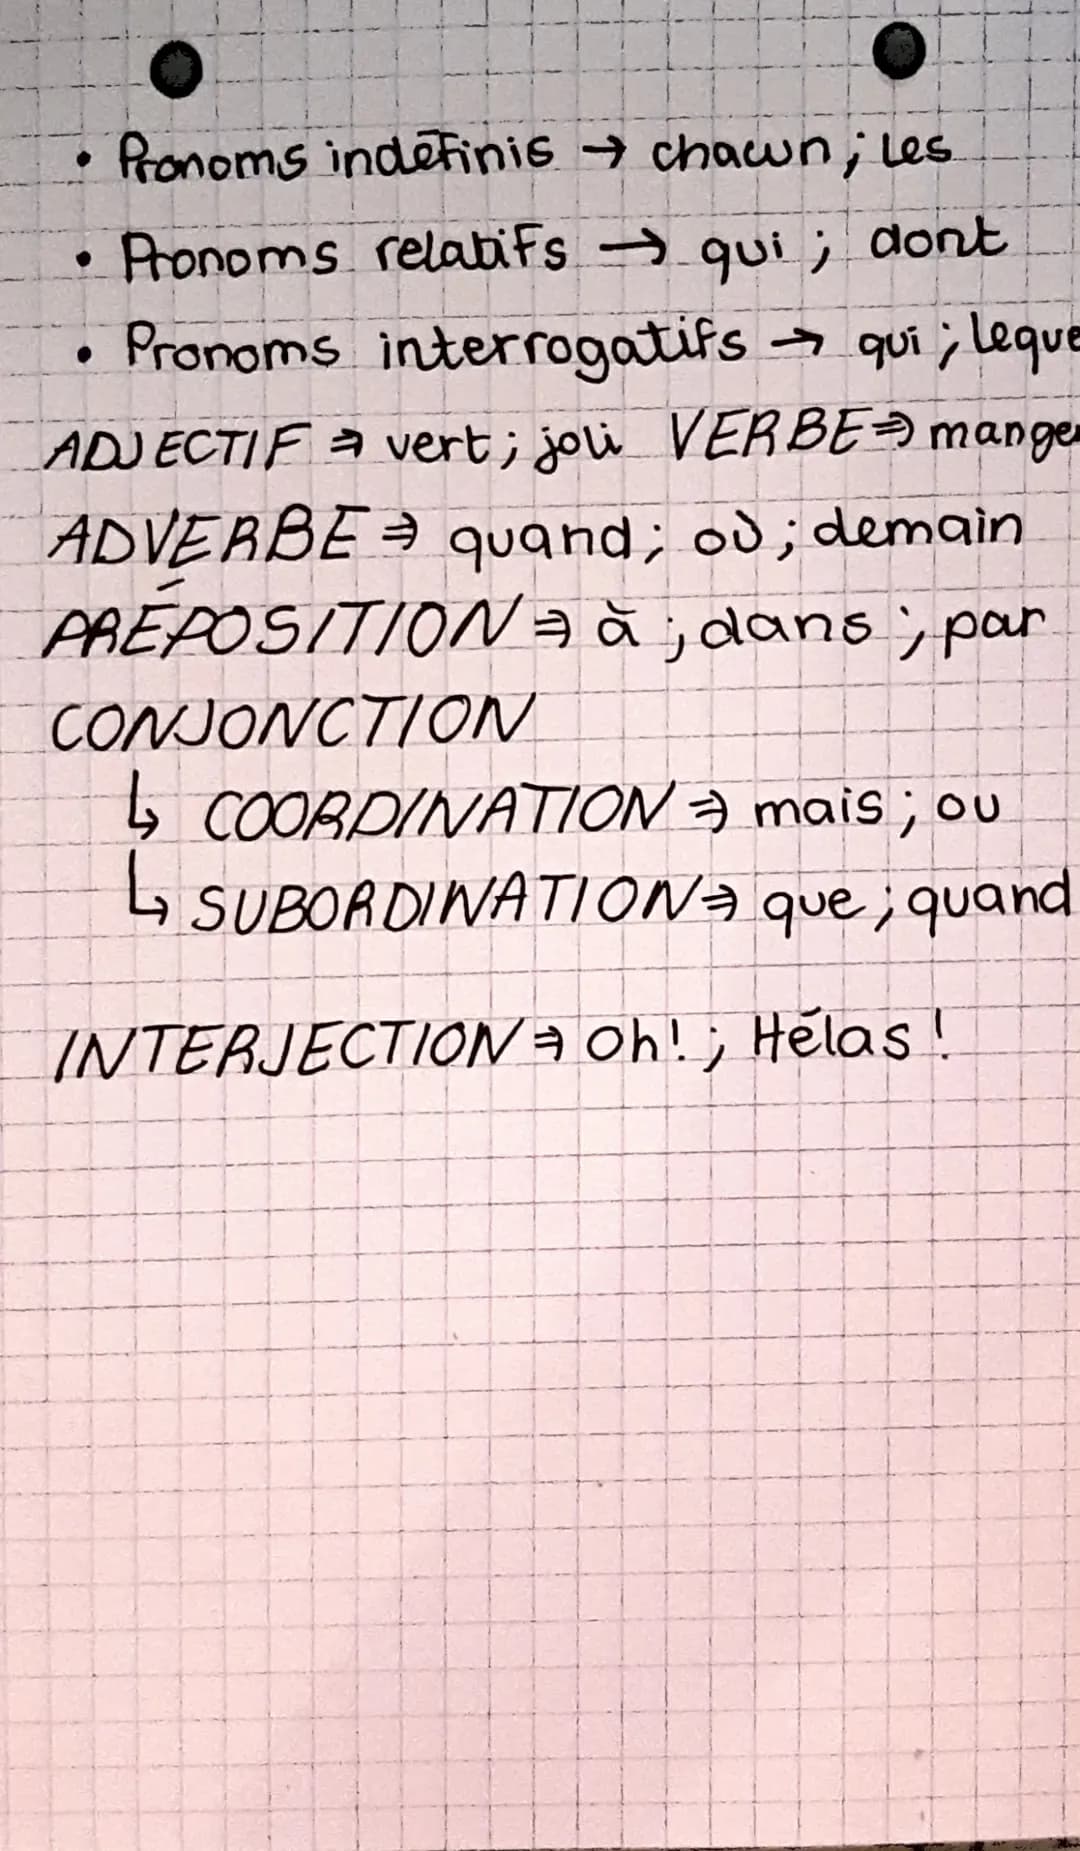 • Pronoms indéfinis → chacun ; les
• Pronoms relatifs → qui ; dont
• Pronoms interrogatifs → qui ; leque
ADJECTIF ⇒ vert ; joli VERBE ⇒ manger
ADVERBE ⇒ quand ; où ; demain
PRÉPOSITION ⇒ à ; dans ; par
CONJONCTION
↳ COORDINATION ⇒ mais ; ou
↳ SUBORDINATION ⇒ que ; quand
INTERJECTION ⇒ Oh! ; Hélas !